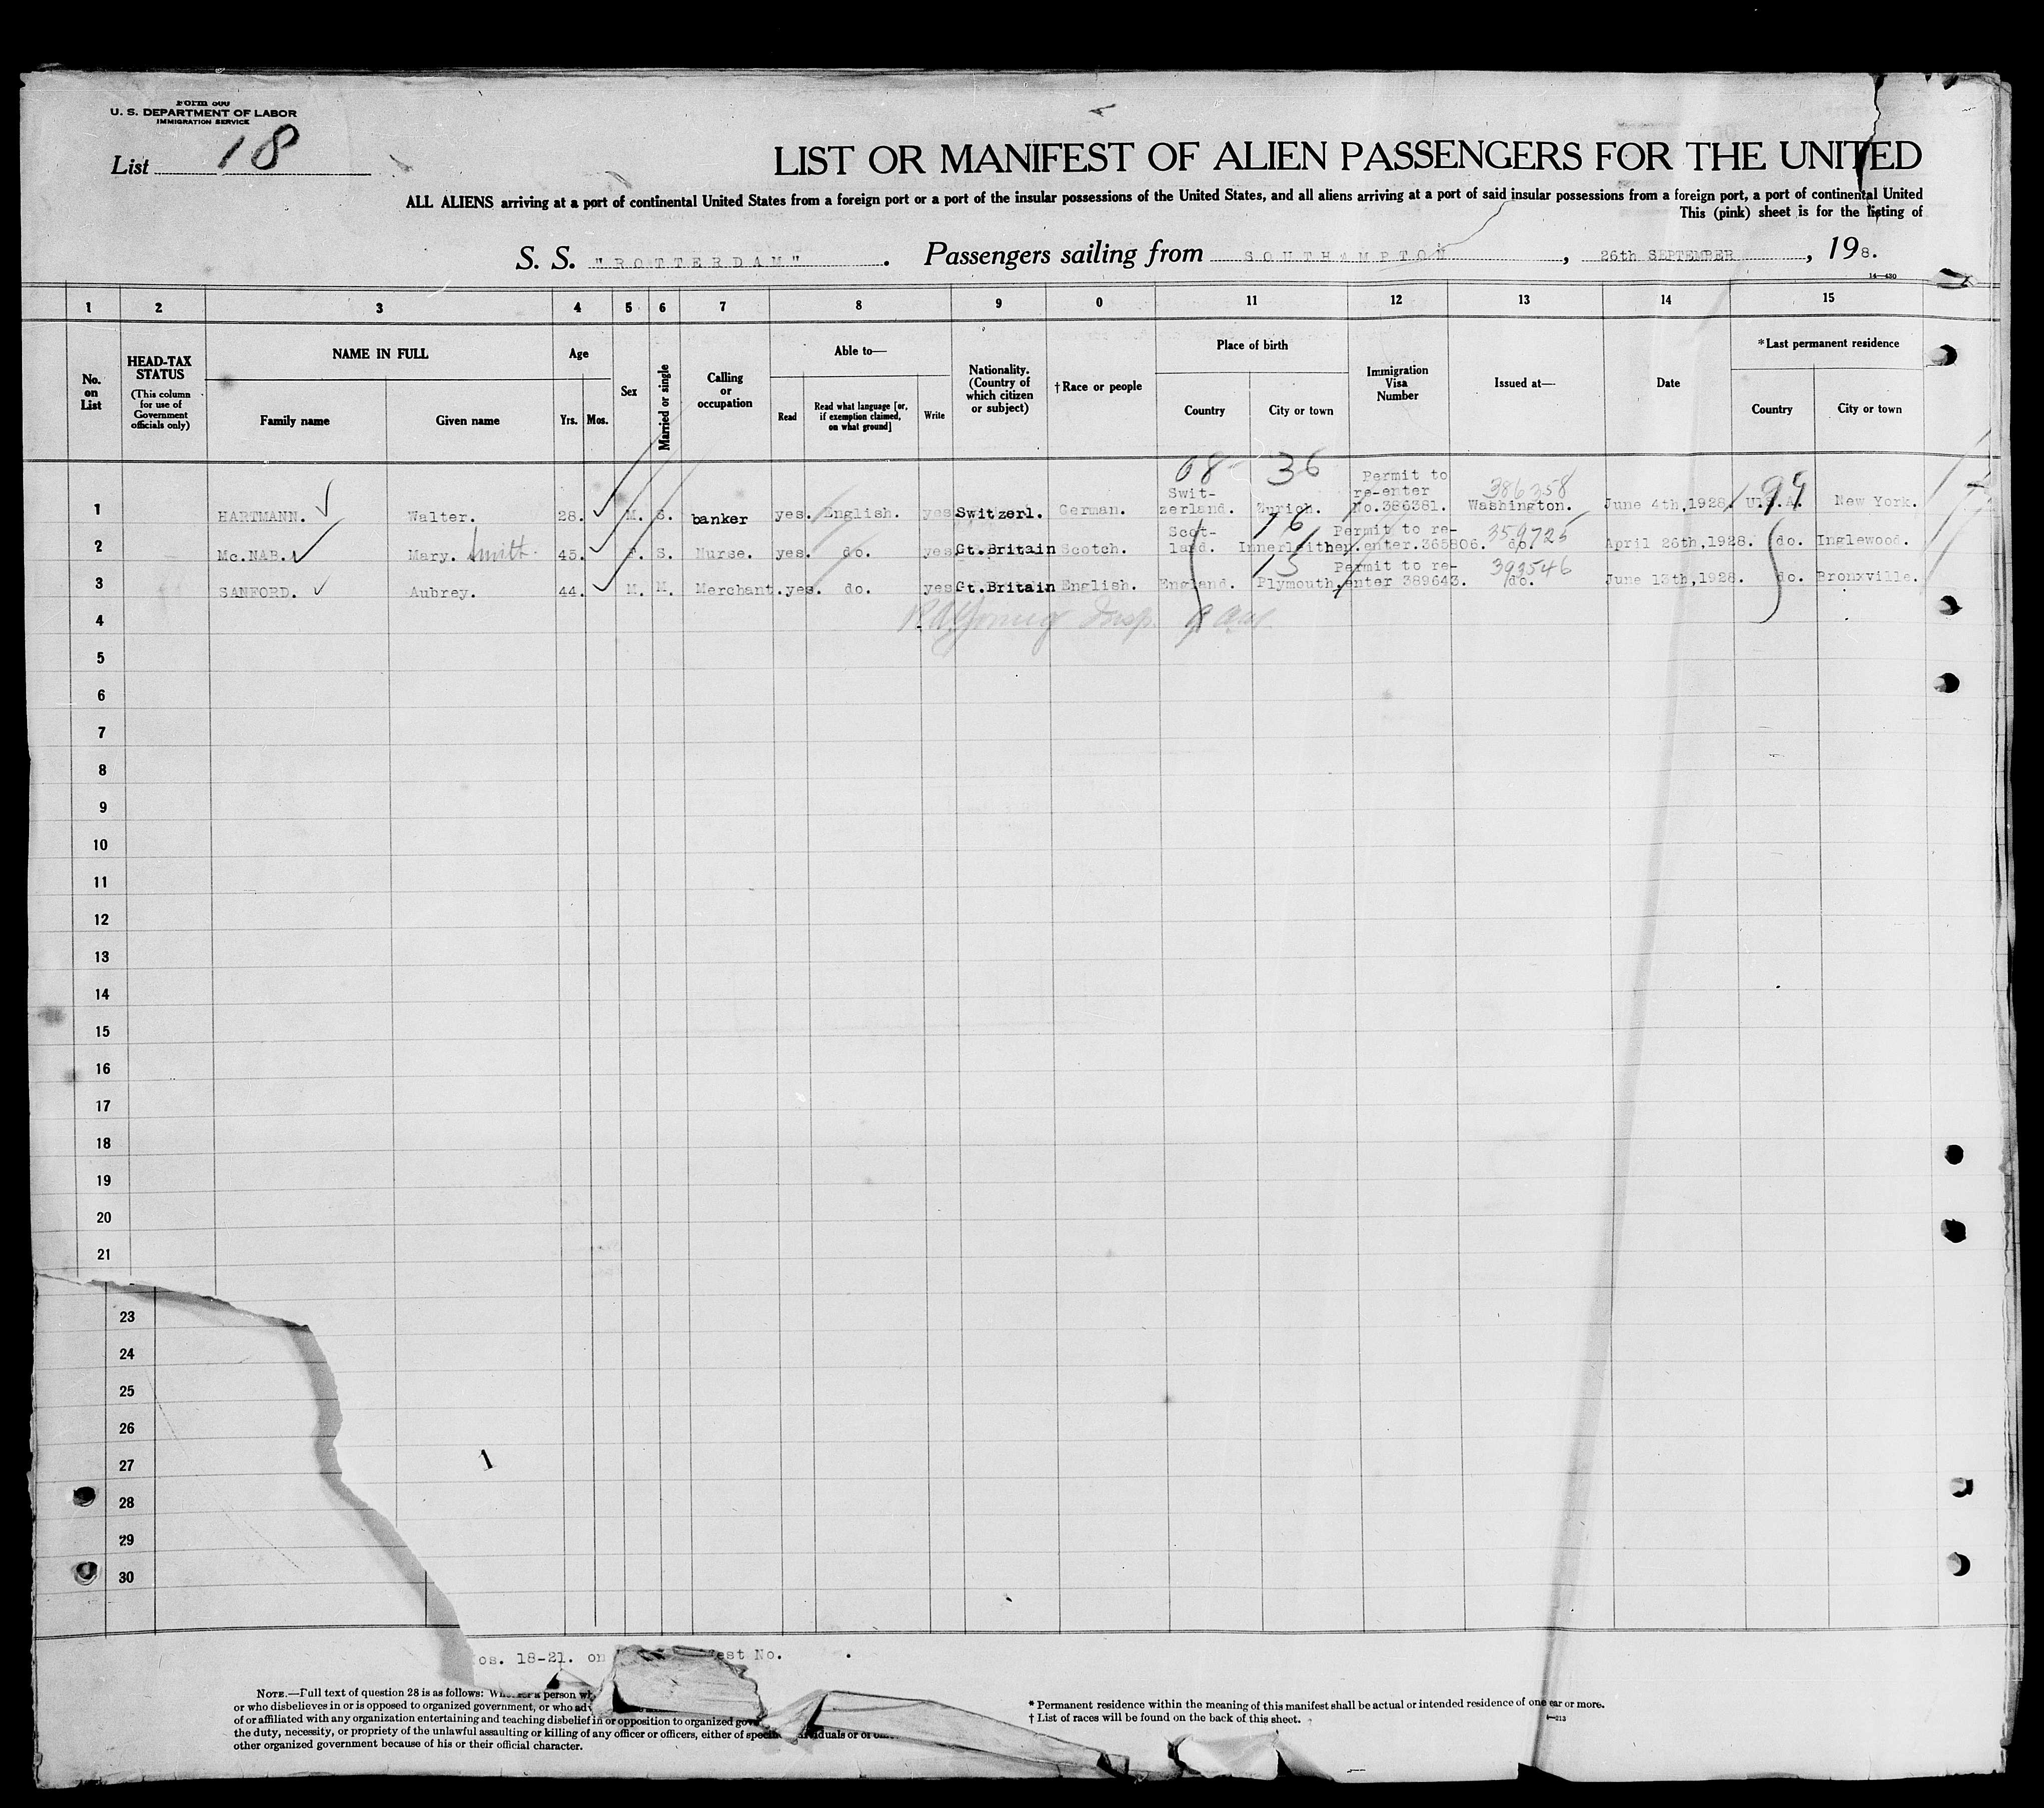 Form 500
U. S. DEPARTMENT OF LABOR
IMMIGRATION SERVICE
List 18
LIST OR MANIFEST OF ALIEN PASSENGERS FOR THE UNITED
ALL ALIENS arriving at a port of continental United States from a foreign port or a port of the insular possessions of the United States, and all aliens arriving at a port of said insular possessions from a foreign port, a port of continental United
This (pink) sheet is for the listing of
S. S. "ROTTERDAM" . Passengers sailing from SOUTHAMPTON , 26th SEPTEMBER , 198.
14—430
1 2 3 4 5 6 7 8 9 0 11 12 13 14 15
No. on List
HEAD-TAX STATUS
(This column for use of Government officials only)
NAME IN FULL
Family name
Given name
Age
Yrs.
Mos.
Sex
Married or single
Calling or occupation
Able to—
Read
Read what language [or, if exemption claimed, on what ground]
Write
Nationality. (Country of which citizen or subject)
†Race or people
Place of birth
Country
City or town
Immigration Visa Number
Issued at—
Date
*Last permanent residence
Country
City or town
68 36
1 HARTMANN. Walter. 28. M. S. banker yes. English. yes Switzerl. German. Swit-zerland. Zurich. Permit to re-enter No.386381. 386358 Washington. June 4th,1928 U.S.A. 94 New York.
2 Mc.NAB. Mary. Smith. 45. F. S. Nurse. yes. do. yes Gt.Britain Scotch. Scot-land. 16 Innerleithen. Permit to re-enter.365806. 359725 do. April 26th,1928. do. Inglewood.
3 SANFORD. Aubrey. 44. M. M. Merchant. yes. do. yes Gt.Britain English. England. 15 Plymouth, Permit to re-enter 389643. 393546 do. June 13th,1928. do. Bronxville.
4
5
6
7
8
9
10
11
12
13
14
15
16
17
18
19
20
21
23
24
25
26
27
1
28
29
30
os. 18-21. on est No. .
NOTE.—Full text of question 28 is as follows: Whether a person wh
or who disbelieves in or is opposed to organized government, or who adv
of or affiliated with any organization entertaining and teaching disbelief in or opposition to organized gov
the duty, necessity, or propriety of the unlawful assaulting or killing of any officer or officers, either of specific individuals or of
other organized government because of his or their official character.
* Permanent residence within the meaning of this manifest shall be actual or intended residence of one ear or more.
† List of races will be found on the back of this sheet.